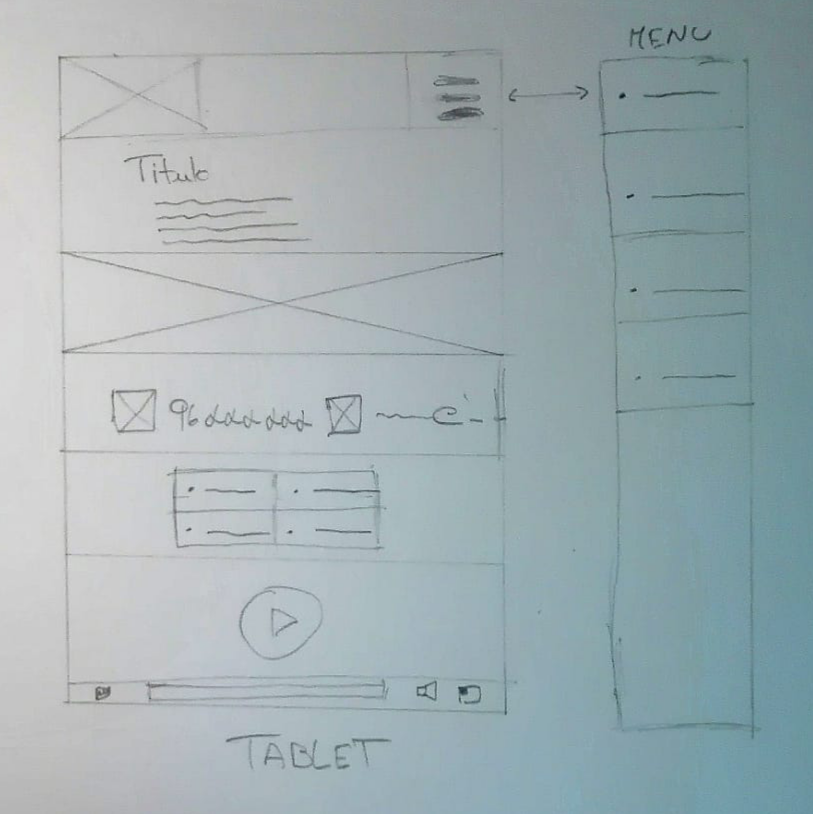 MENU
Titulo
96
TABLET